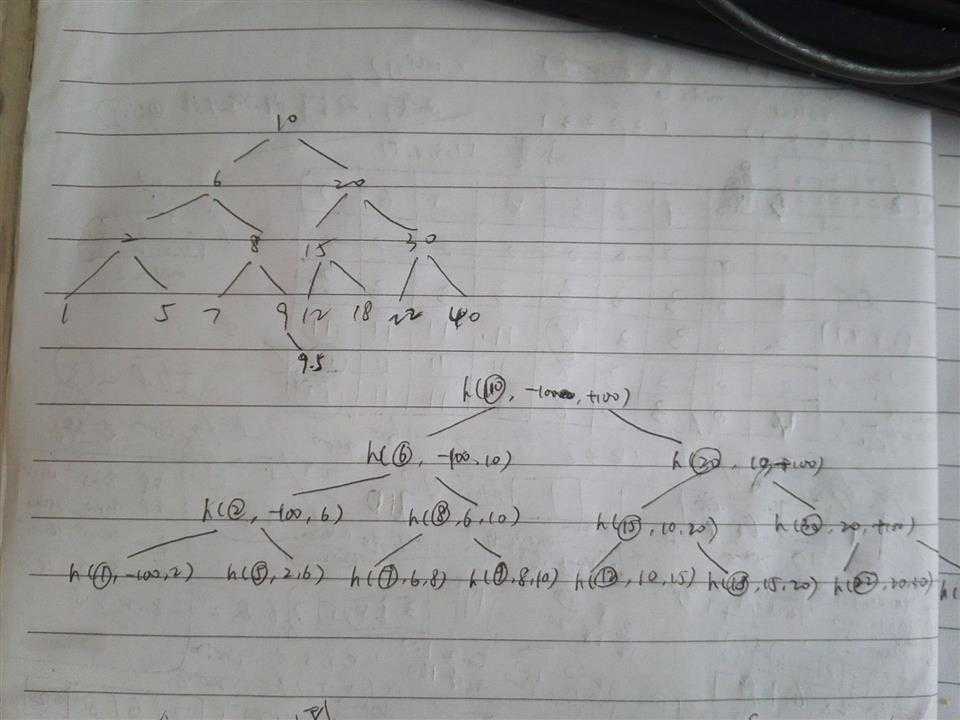 10
6 20
2 8 15 30
1 5 7 9 12 18 22 40
9.5
h(10, -100, +100)
h(6, -100, 10) h(20, 10, +100)
h(2, -100, 6) h(8, 6, 10) h(15, 10, 20) h(30, 20, +100)
h(1, -100, 2) h(5, 2, 6) h(7, 6, 8) h(9, 8, 10) h(12, 10, 15) h(18, 15, 20) h(22, 20, 30) h(